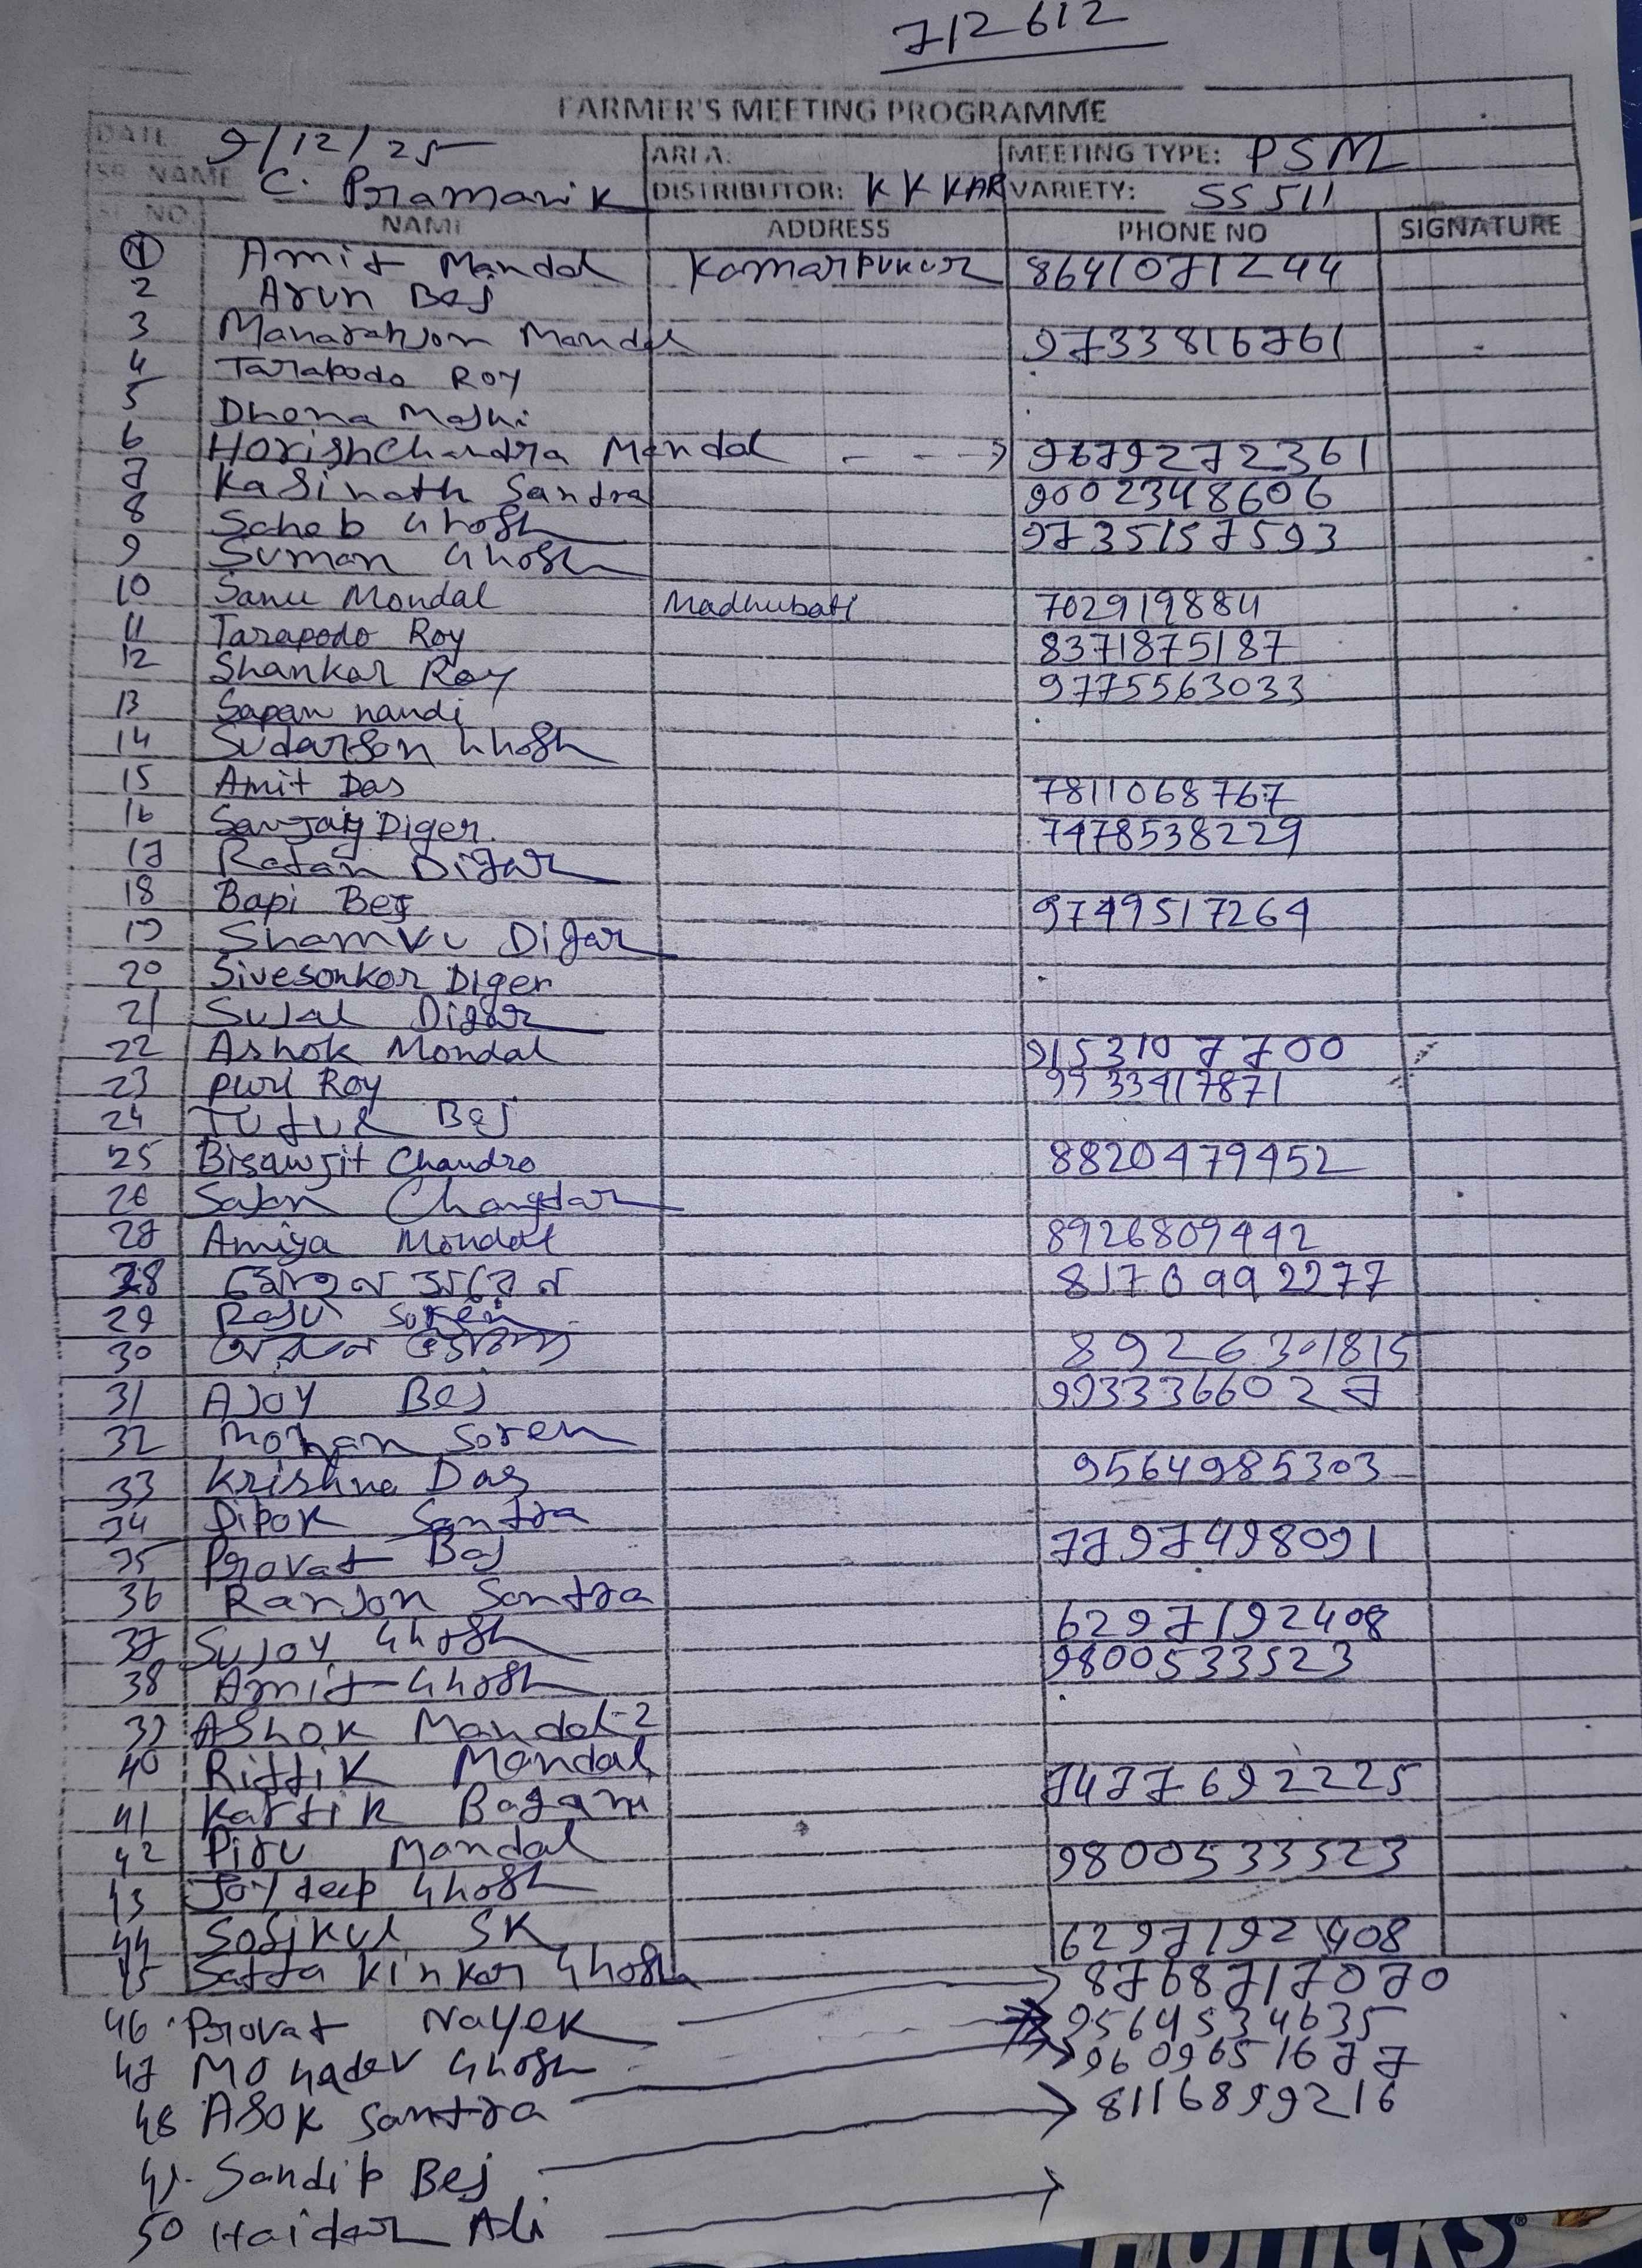 712612
FARMER'S MEETING PROGRAMME
DATE 9/12/25 AREA: MEETING TYPE: PSM
SR. NAME C. Pramanik DISTRIBUTOR: K K KAR VARIETY: SS 511
NO. NAME ADDRESS PHONE NO SIGNATURE
1 Amit Mandal Kamarpukur 8641071244
2 Arun Bej
3 Manaranjon Mandal 9733816761
4 Tarapodo Roy
5 Dhona Majhi
6 Horishchandra Mandal - - -> 9679272361
7 Kasinath Santra 9002348606
8 Saheb Ghosh 9735157593
9 Suman Ghosh
10 Sanu Mondal Madhubati 702919884
11 Tarapodo Roy 8371875187
12 Shankar Roy 9775563033
13 Sapan nandi
14 Sudarson Ghosh
15 Amit Das 7811068767
16 Sanjay Diger 7478538229
17 Ratan Digar
18 Bapi Bej 9749517264
19 Shamvu Digar
20 Sivesonkor Diger
21 Sujal Digar
22 Ashok Mondal 9153107700
23 Roy 9933417871
24 Tutul Bej
25 Bisawjit Chandro 8820479452
26 Sajon
27 Amiya Mondal 8926809442
28 মোহন সরেন
29 Raju Soren
30 8926301815
31 Ajoy Bej 9933366027
32 Mohan Soren
33 Krishna Das 9564985303
34 Dipok Santra
35 Provat Bej 7797498091
36 Ranjon Santra
37 Sujoy Ghosh 6297192408
38 Amit Ghosh 9800533523
39 Ashok Mandal-2
40 Rittik Mandal
41 Kartik 7477692225
42 Piru Mandal
43 Joydeep Ghosh 9800533523
44 Sofikul SK
45 Satta Kinkor Ghosh 6297192408
46 Provat Nayek 8768717070
47 Mohadev Ghosh 9564534635
48 Asok Santra 9609651677
49 Sandip Bej 8116899216
50 Haidar Ali
HORLICKS